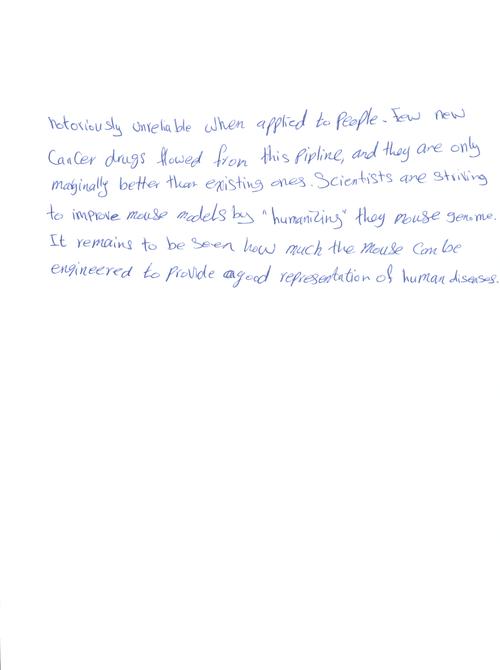 notoriously unreliable when applied to people. Few new
cancer drugs flowed from this pipline, and they are only
marginally better than existing ones. Scientists are striving
to improve mouse models by "humanizing" they mouse genome.
It remains to be seen how much the mouse can be
engineered to provide a good representation of human diseases.